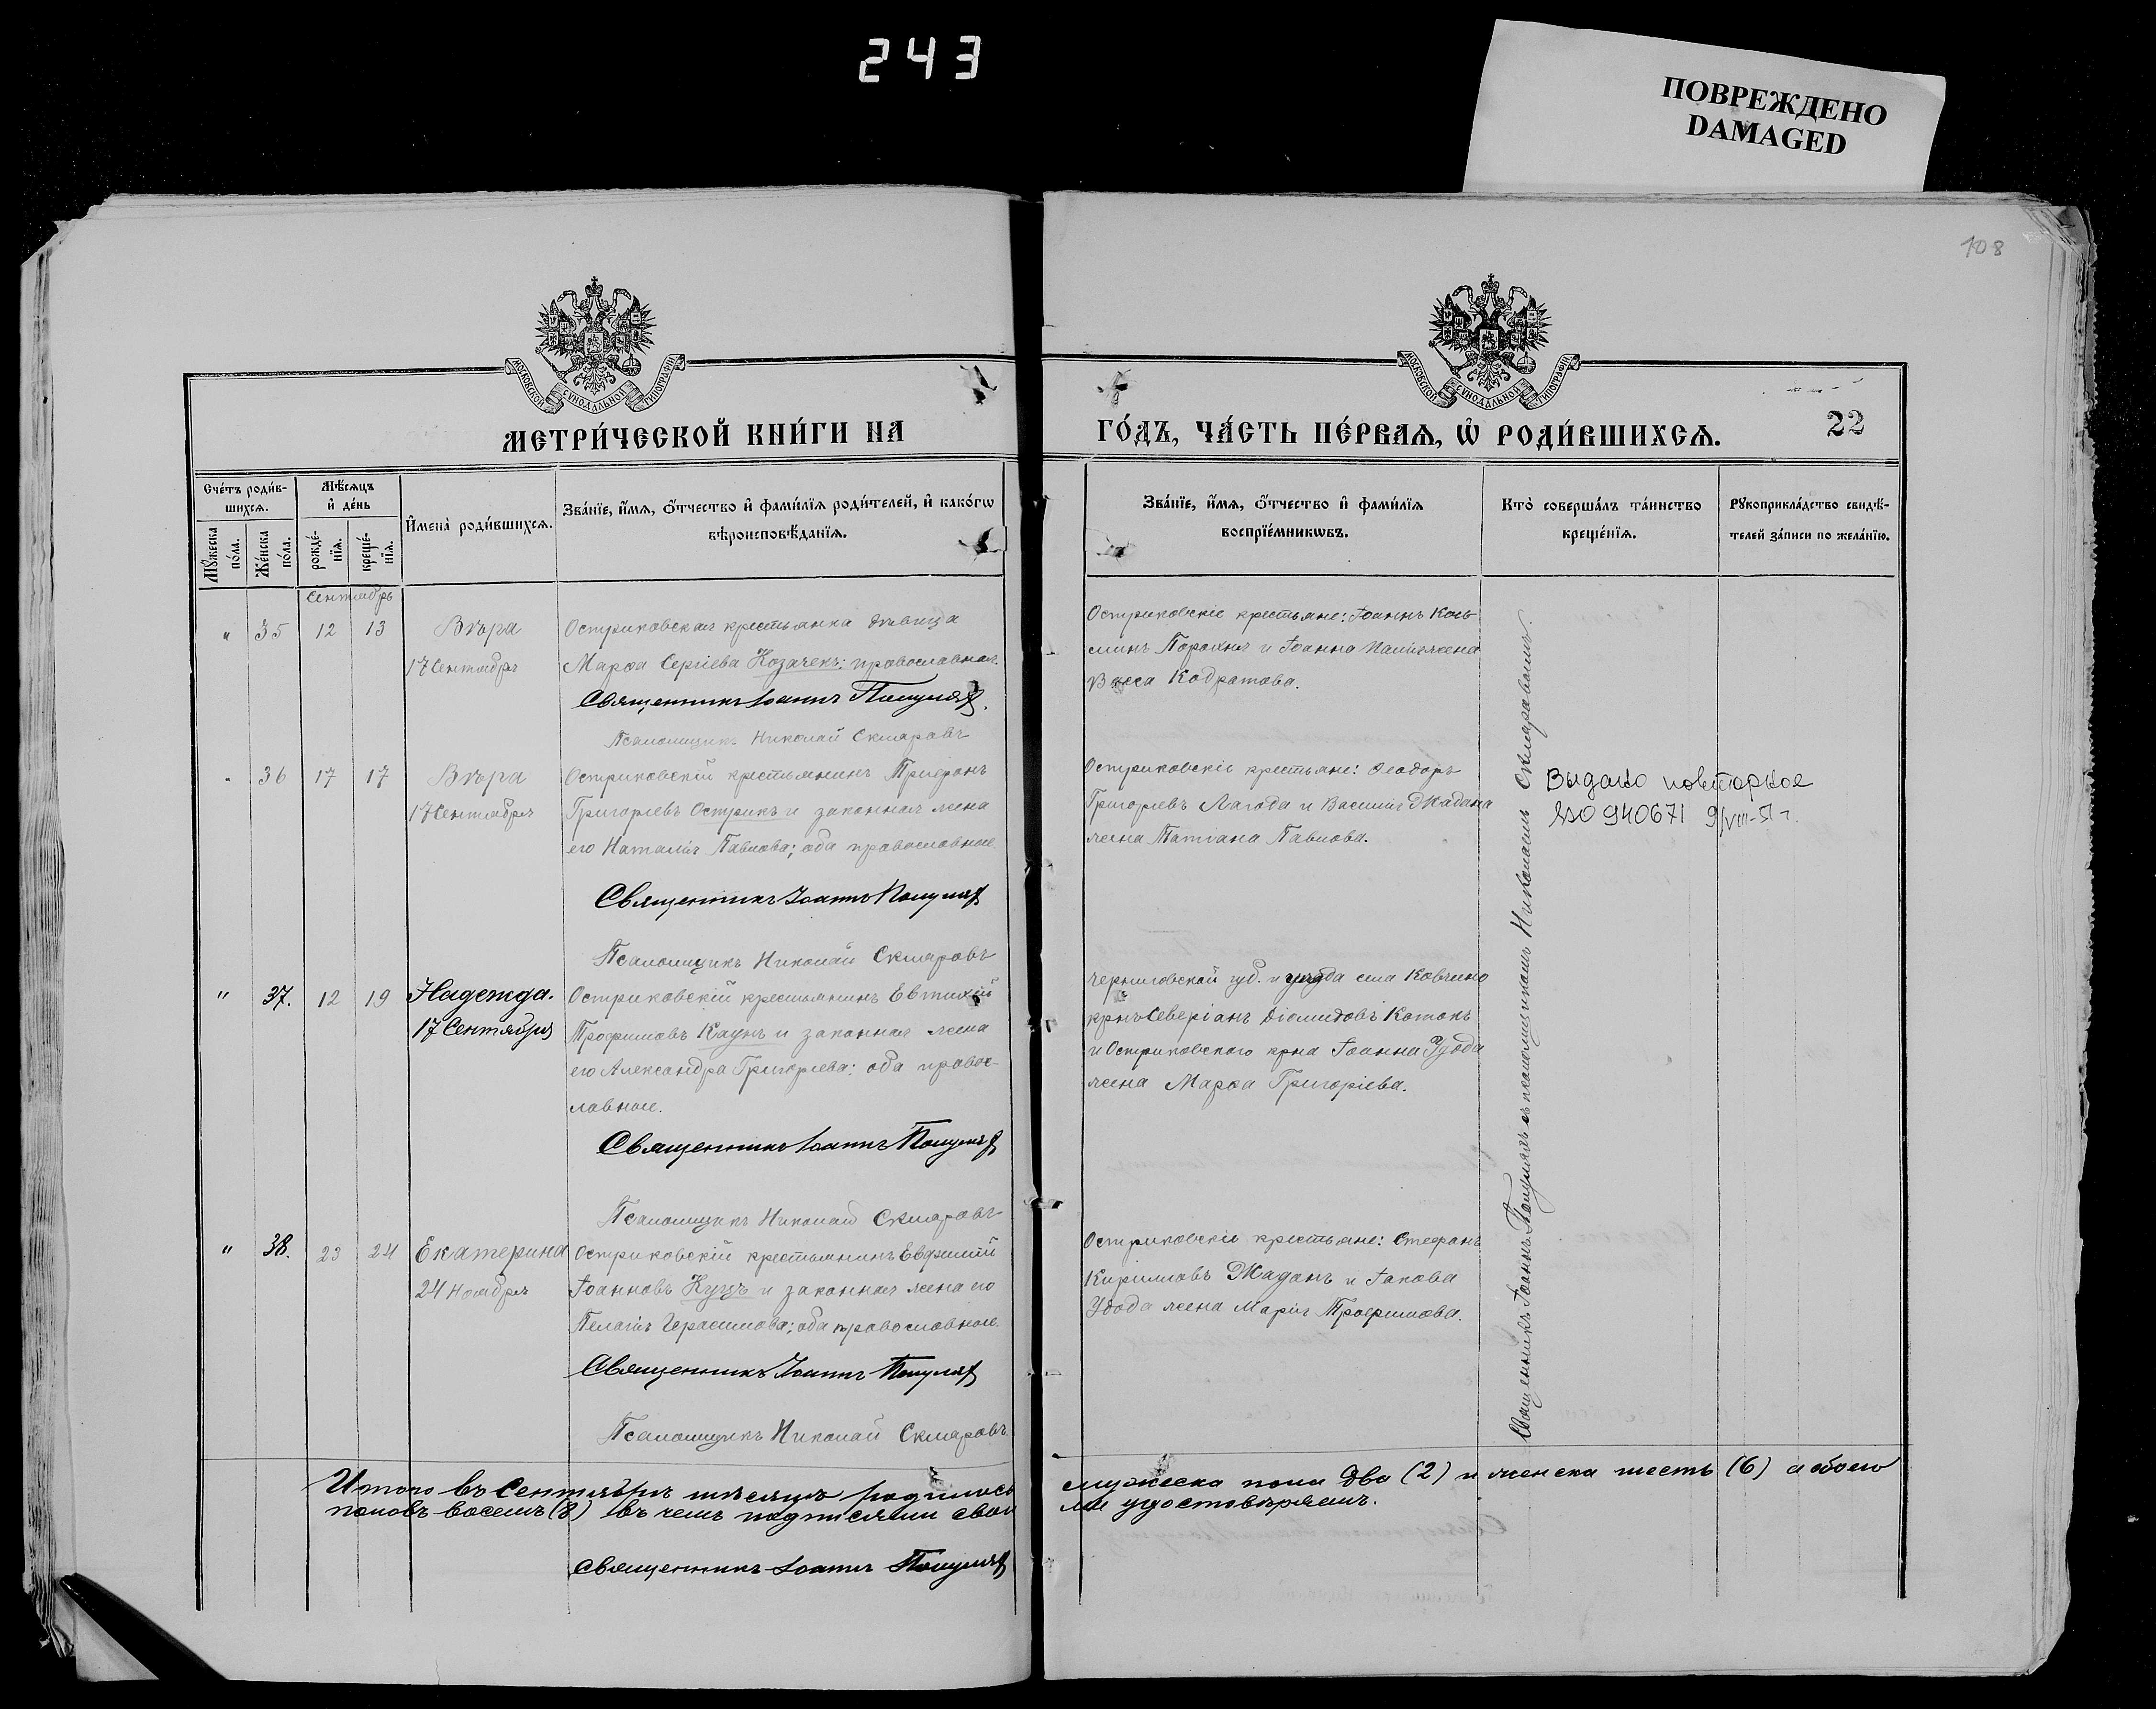 243
ПОВРЕЖДЕНО
DAMAGED
108
МОСКОВСКОЙ СУНОДАЛЬНОЙ ТИПОГРАФІИ
МОСКОВСКОЙ СУНОДАЛЬНОЙ ТИПОГРАФІИ
МЕТРИ́ЧЕСКОЙ КНИ́ГИ НА
ГО́ДЪ, ЧА́СТЬ ПЕ́РВАѦ, Ѡ҆ РОДИ́ВШИХСѦ.
22
Сче́тъ роди́в-
шихсѧ.
Мѣ́сѧцъ
и҆ де́нь
Мꙋ́жеска
по́ла.
Же́нска
по́ла.
рожде́-
нїѧ.
креще́-
нїѧ.
И҆мена̀ роди́вшихсѧ.
Зва́нїе, и҆́мѧ, ѻ҆́тчество и҆ фами́лїѧ роди́телей, и҆ како́гѡ
вѣроисповѣ́данїѧ.
Зва́нїе, и҆́мѧ, ѻ҆́тчество и҆ фами́лїѧ
воспрїе́мникѡвъ.
Кто̀ соверша́лъ та́инство
креще́нїѧ.
Рꙋкоприкла́дство свидѣ́-
телей за́писи по жела́нїю.
Сентябрь
" 35 12 13 Вѣра
17 Сентября
Остриковская крестьянка дѣвица
Марѳа Сергіева Козачекъ; православная.
Священникъ Іоаннъ
Псаломщикъ Николай Скляровъ
Остриковскіе крестьяне: Іоаннъ Кось-
минъ и Іоанна жена
Васса Кодратова.
" 36 17 17 Вѣра
17 Сентября
Остриковскій крестьянинъ Трифонъ
Григорьевъ Острикъ и законная жена
его Наталія Павлова; оба православные.
Священникъ Іоаннъ
Псаломщикъ Николай Скляровъ
Остриковскіе крестьяне: Ѳеодоръ
Григорьевъ Лагода и Василія Жадана
жена Татіана Павлова.
Выдано повторное
940671 9/VIII-
" 37. 12 19 Надежда.
17 Сентября
Остриковскій крестьянинъ Евтихій
Трофимовъ Каунъ и законная жена
его Александра Григоріева; оба правос-
лавные.
Священникъ Іоаннъ
Псаломщикъ Николай Скляровъ
Черниговской губ. и уѣзда села Ковчино
крнъ Северіанъ Діомидовъ Котокъ
и Остриковского крна Іоанна Удода
жена Марѳа Григоріева.
" 38. 23 24 Екатерина
24 Ноября
Остриковскій крестьянинъ Евфимій
Іоанновъ Куцъ и законная жена его
Пелагія Герасимова; оба православные.
Священникъ Іоаннъ
Псаломщикъ Николай Скляровъ
Остриковскіе крестьяне: Стефанъ
Кириловъ Жаданъ и Іакова
Удода жена Марія Трофимова.
Священникъ Іоаннъ съ псаломщикомъ Николаемъ Скляровымъ.
Итого въ Сентябрѣ мѣсяцѣ родилось мужеска пола два (2) и женска шесть (6) а обоего
половъ восемь (8) въ чемъ подписями своими удостовѣряемъ.
Священникъ Іоаннъ